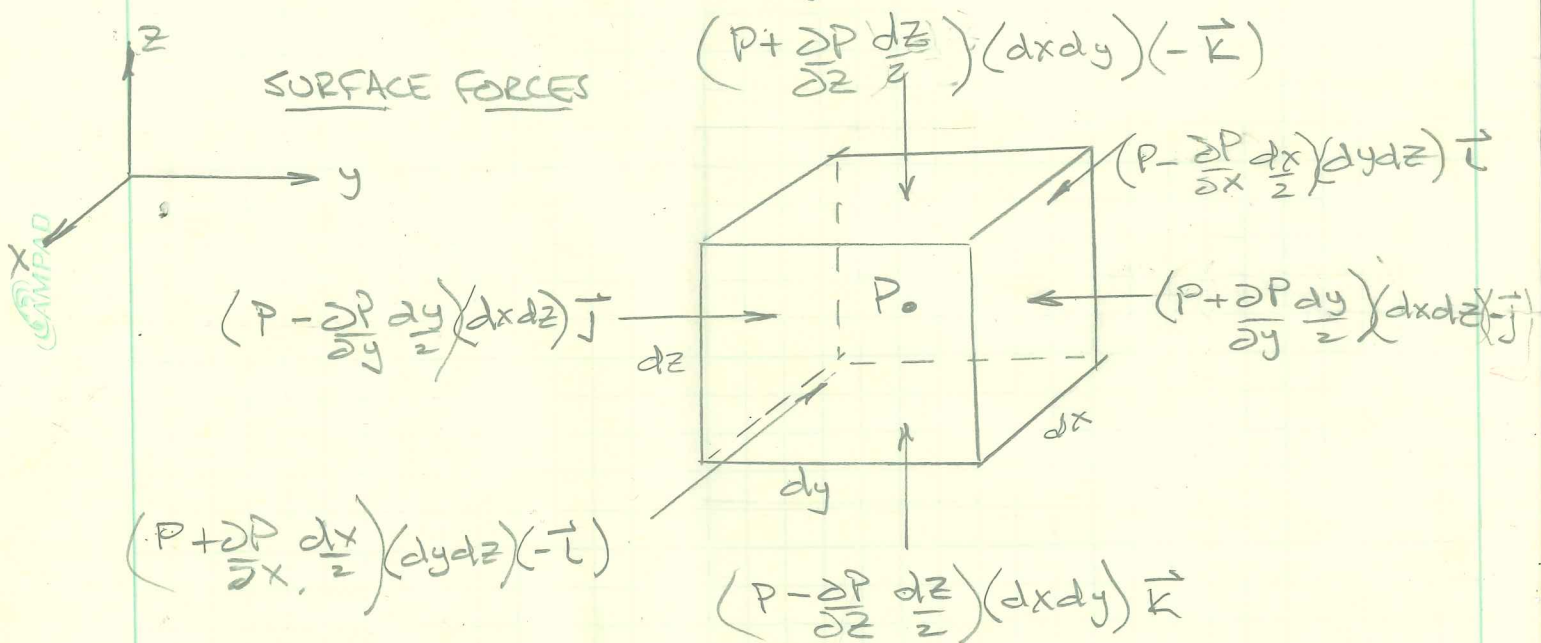 z
SURFACE FORCES
(P + ∂P/∂z dz/2)(dxdy)(-k⃗)
y
x
CAMPAD
(P - ∂P/∂x dx/2)(dydz) i⃗
(P - ∂P/∂y dy/2)(dxdz) j⃗
P.
(P + ∂P/∂y dy/2)(dxdz)(-j⃗)
dz
dx
dy
(P + ∂P/∂x dx/2)(dydz)(-i⃗)
(P - ∂P/∂z dz/2)(dxdy) k⃗